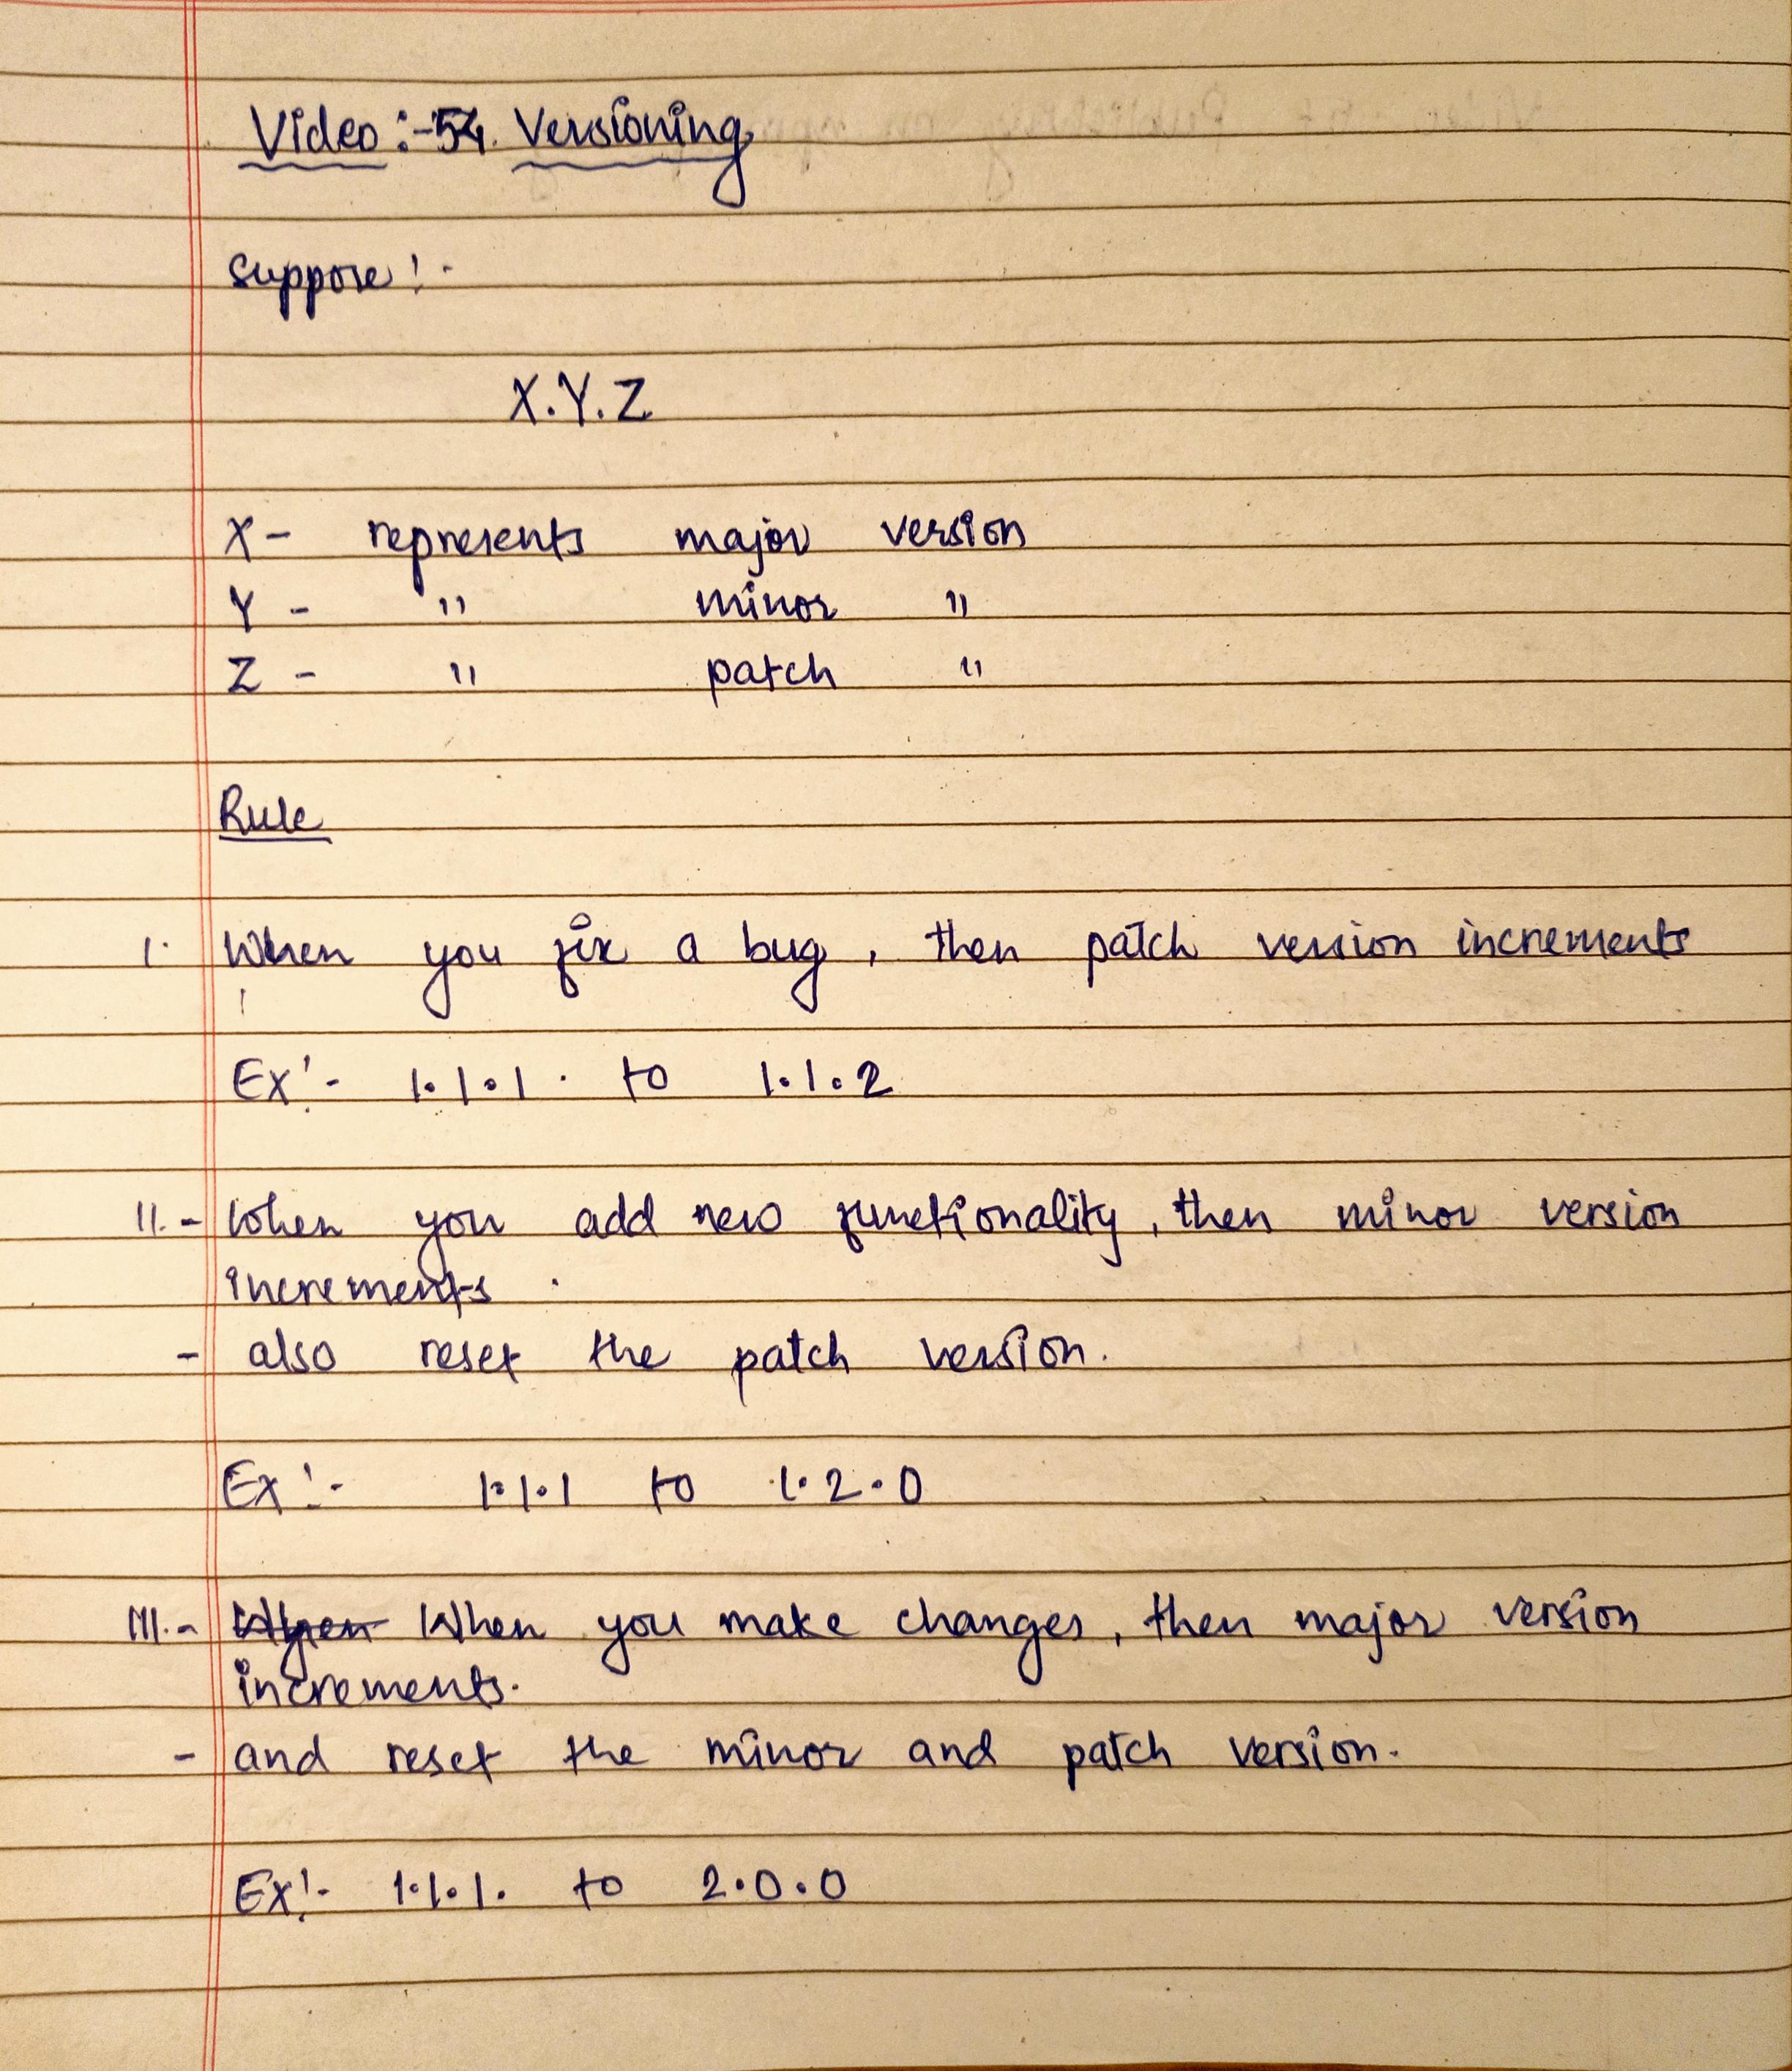 Video :- 54. Versioning
Suppose :-
X.Y.Z
X - represents major version
Y - " minor "
Z - " patch "
Rule
I. When you fix a bug, then patch version increments
Ex :- 1.1.1 . to 1.1.2
II. - When you add new functionality, then minor version
increments .
- also reset the patch version.
Ex :- 1.1.1 to 1.2.0
III. - When When you make changes, then major version
increments.
- and reset the minor and patch version.
Ex :- 1.1.1. to 2.0.0